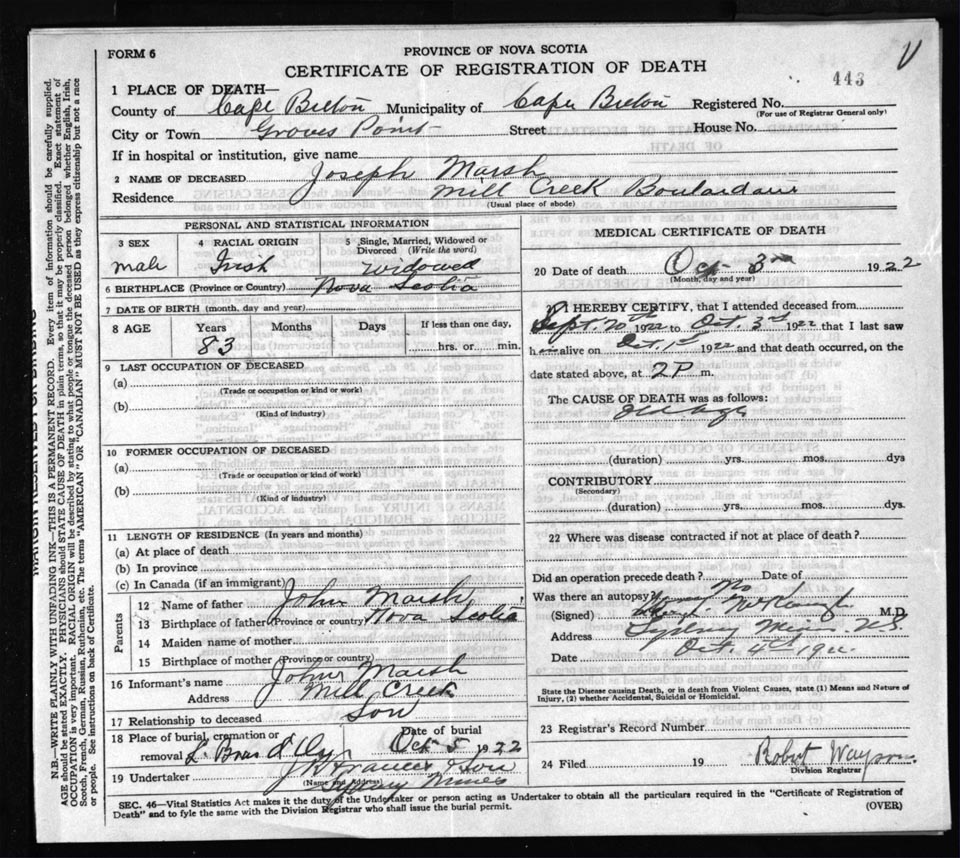 FORM 6
PROVINCE OF NOVA SCOTIA
CERTIFICATE OF REGISTRATION OF DEATH
443
1 PLACE OF DEATH—
County of Cape Breton Municipality of Cape Breton Registered No.
(For use of Registrar General only)
City or Town Groves Point Street House No.
If in hospital or institution, give name
2 NAME OF DECEASED Joseph Marsh
Residence Mill Creek Boulardarie
(Usual place of abode)
PERSONAL AND STATISTICAL INFORMATION
3 SEX 4 RACIAL ORIGIN 5 Single, Married, Widowed or Divorced (Write the word)
male Irish Widowed
6 BIRTHPLACE (Province or Country) Nova Scotia
7 DATE OF BIRTH (month, day and year)
8 AGE Years Months Days If less than one day,
83 hrs. or min.
9 LAST OCCUPATION OF DECEASED
(a)
(Trade or occupation or kind or work)
(b)
(Kind of industry)
10 FORMER OCCUPATION OF DECEASED
(a)
(Trade or occupation or kind of work)
(b)
(Kind of industry)
11 LENGTH OF RESIDENCE (In years and months)
(a) At place of death
(b) In province
(c) In Canada (if an immigrant)
Parents
12 Name of father John Marsh
13 Birthplace of father (Province or country) Nova Scotia
14 Maiden name of mother
15 Birthplace of mother (Province or country)
16 Informant's name John Marsh
Address Mill Creek
17 Relationship to deceased Son
18 Place of burial, cremation or
removal L. Bras d'Or Oct 5 1922
19 Undertaker
(Name and Address) Sydney Mines
MEDICAL CERTIFICATE OF DEATH
20 Date of death Oct 3rd 1922
(Month, day and year)
21 I HEREBY CERTIFY, that I attended deceased from
Sept. 20th 1922 to Oct. 3rd 1922 that I last saw
h alive on Oct. 1st 1922 and that death occurred, on the
date stated above, at 2P m.
The CAUSE OF DEATH was as follows:
Old age
(duration) yrs. mos. dys
CONTRIBUTORY
(Secondary)
(duration) yrs. mos. dys.
22 Where was disease contracted if not at place of death?
Did an operation precede death? Date of
Was there an autopsy No
(Signed) M.D.
Address Sydney Mines N.S.
Date Oct. 4th 1922
State the Disease causing Death, or in death from Violent Causes, state (1) Means and Nature of
Injury, (2) whether Accidental, Suicidal or Homicidal.
23 Registrar's Record Number
24 Filed 19 Robert
Division Registrar
SEC. 46—Vital Statistics Act makes it the duty of the Undertaker or person acting as Undertaker to obtain all the particulars required in the "Certificate of Registration of
Death" and to fyle the same with the Division Registrar who shall issue the burial permit.
(OVER)
MARGIN RESERVED FOR BINDING
N.B.—WRITE PLAINLY WITH UNFADING INK—THIS IS A PERMANENT RECORD. Every item of information should be carefully supplied.
AGE should be stated EXACTLY. PHYSICIANS should STATE CAUSE OF DEATH in plain terms, so that it may be properly classified. Exact statement of
OCCUPATION is very important. RACIAL ORIGIN will be described by stating to what people or tongue the deceased person belonged whether English, Irish,
Scotch, French, German, Russian, Ruthenian, etc. The terms "AMERICAN" OR "CANADIAN" MUST NOT BE USED as they express citizenship but not a race
or people. See instructions on back of Certificate.